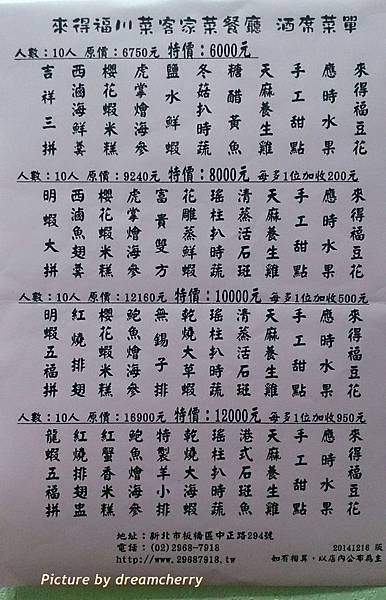 來得福川菜客家菜餐廳 酒席菜單
人數：10人 原價：6750元 特價：6000元
吉祥三拼
西滷海鮮羹
櫻花蝦米糕
虎掌燴海參
鹽水鮮蝦
冬菇時蔬
糖醋黃魚
天麻養生雞
手工甜點
應時水果
來得福豆花
人數：10人 原價：9240元 特價：8000元 每多1位加收200元
明蝦大拼
西滷魚翅羹
櫻花蝦米糕
虎掌燴海參
富貴雙方
花雕蒸鮮蝦
瑤柱扒時蔬
清蒸活石斑
天麻養生雞
手工甜點
應時水果
來得福豆花
人數：10人 原價：12160元 特價：10000元 每多1位加收500元
明蝦五福拼
紅燒排翅
櫻花蝦米糕
鮑魚燴海參
無錫子排
乾燒大草蝦
瑤柱扒時蔬
清蒸活石斑
天麻養生雞
手工甜點
應時水果
來得福豆花
人數：10人 原價：16900元 特價：12000元 每多1位加收950元
龍蝦五福拼
紅燒排翅盅
紅蟹香米糕
鮑魚燴海參
特製羊小排
乾燒大海蝦
瑤柱扒時蔬
港式活石斑
天麻養生雞
手工甜點
應時水果
來得福豆花
地址：新北市板橋區中正路294號
電話：(02)2968-7918
http://www.29687918.tw
20141216 版
如有相異，以店內公布為主
Picture by dreamcherry